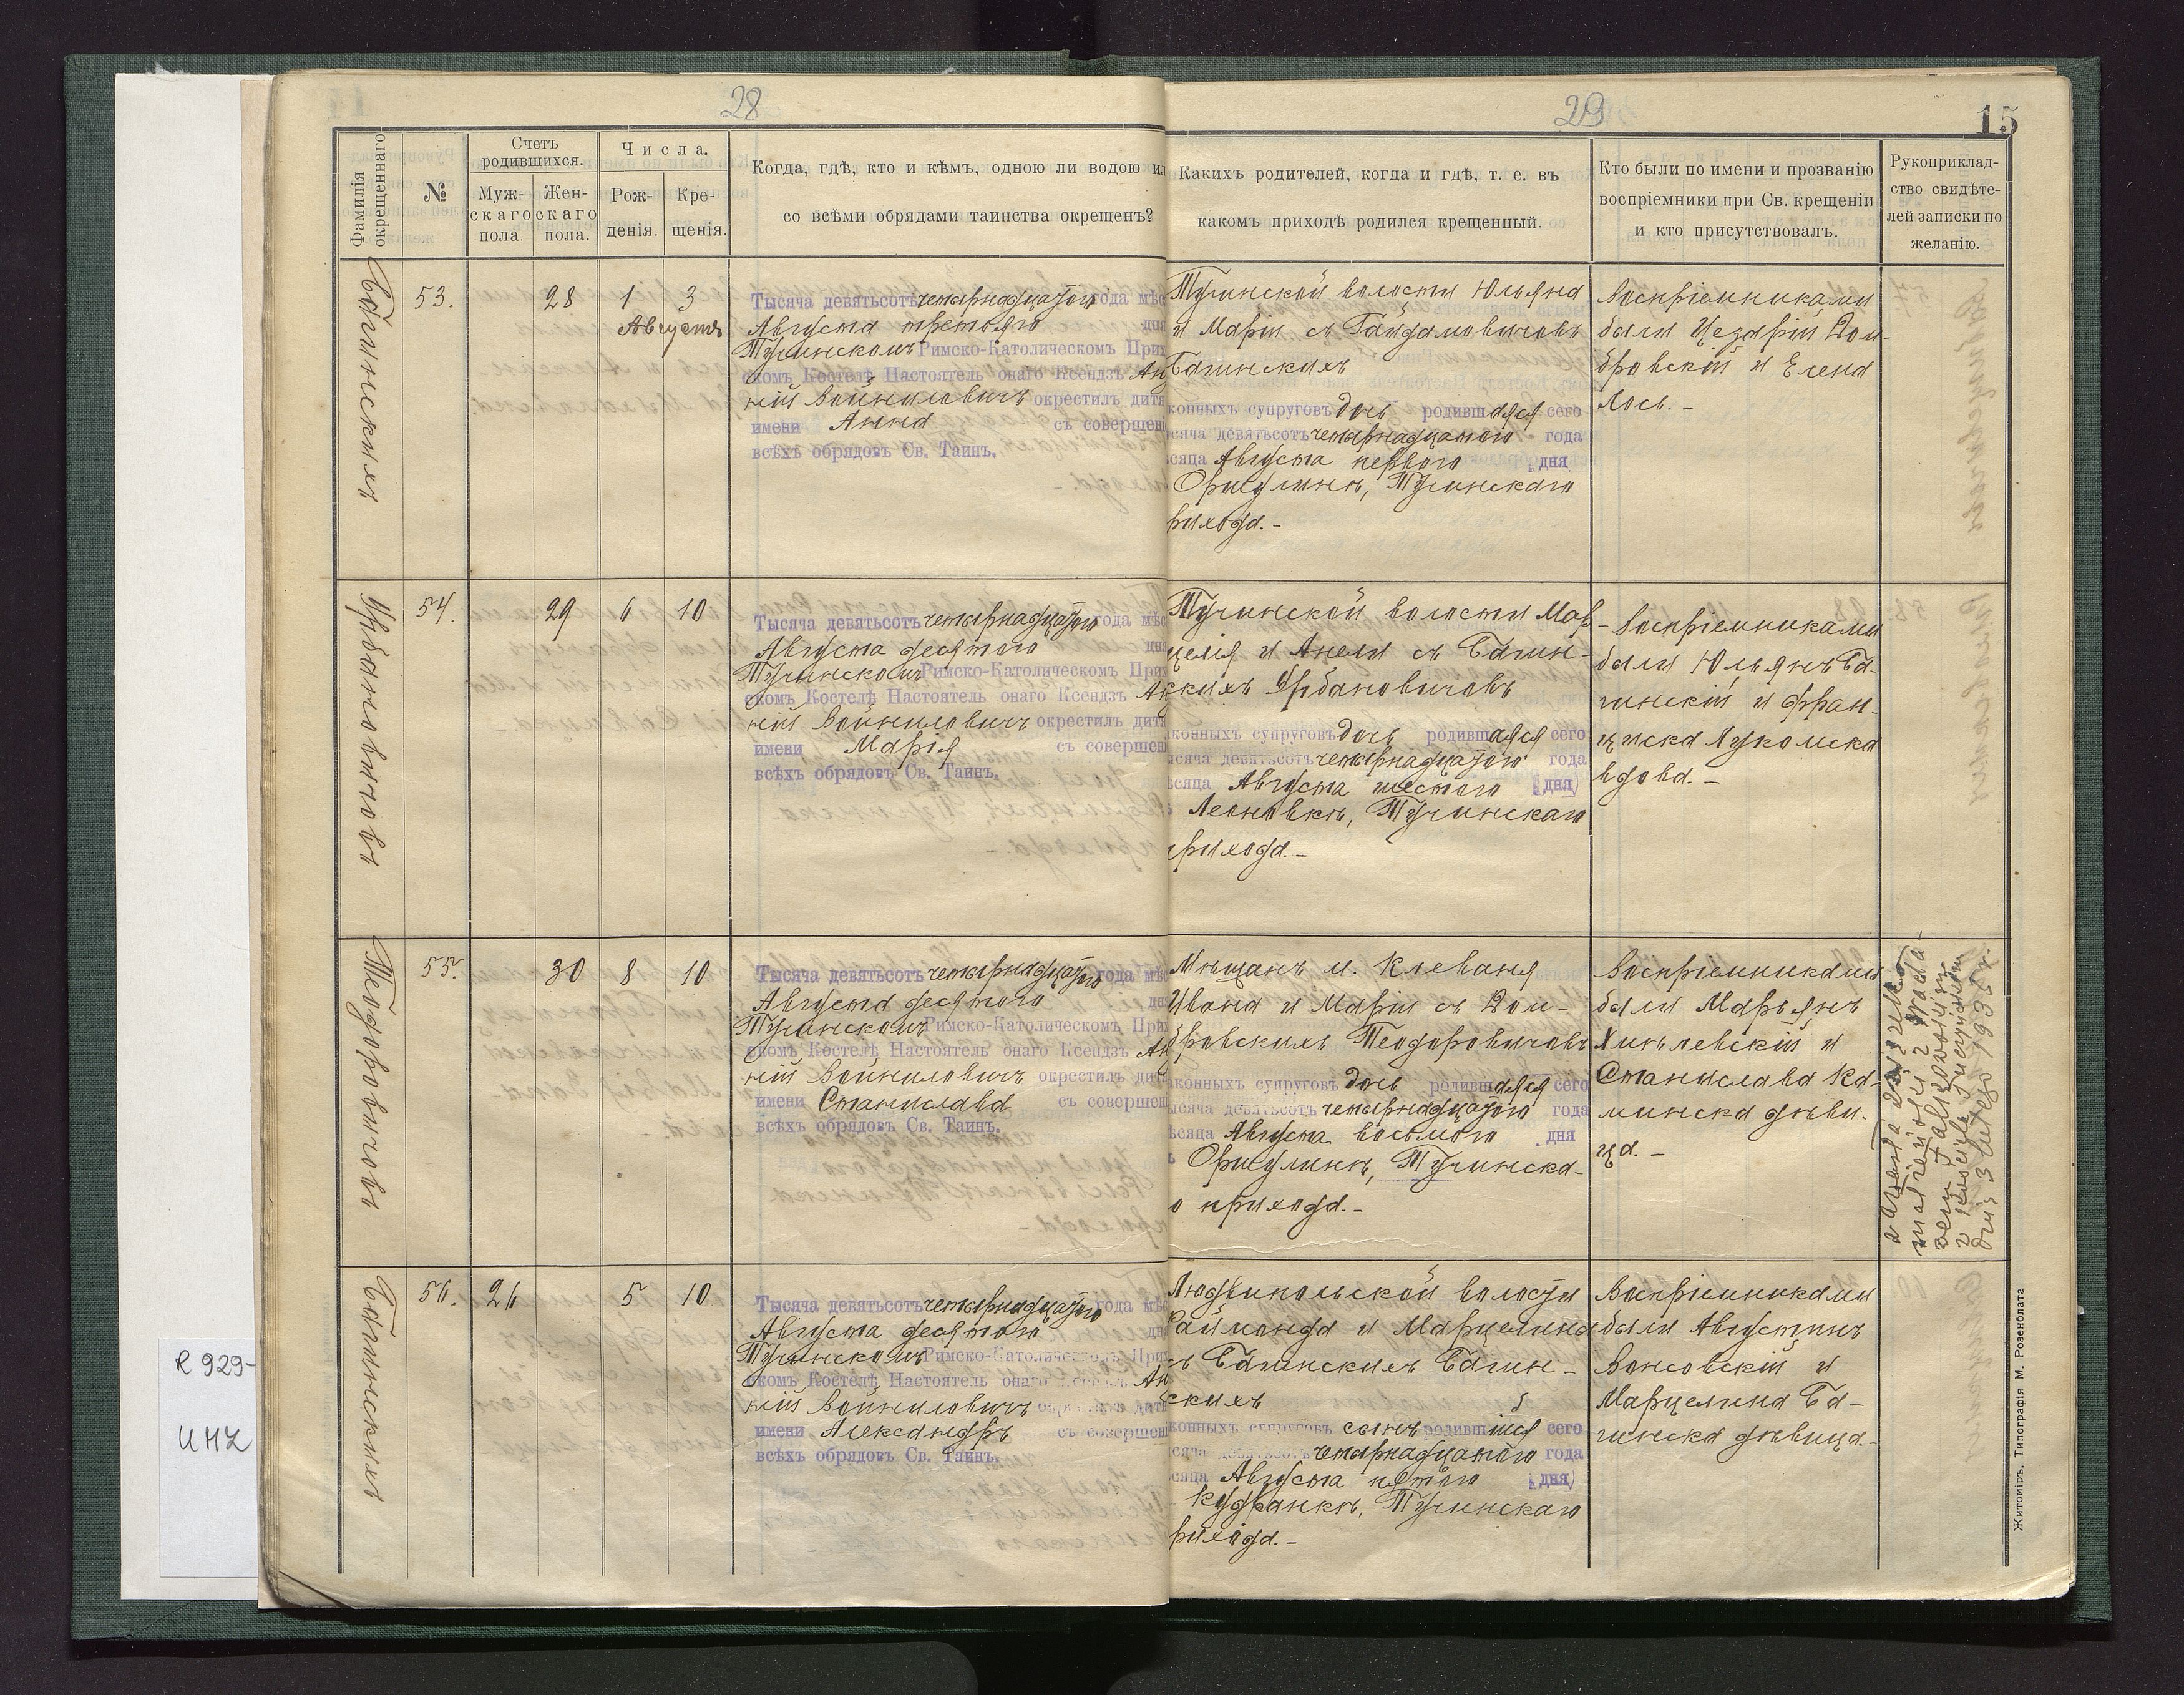 28
Фамилія окрещеннаго.
№
Счетъ родившихся.
Муж-скаго пола.
Жен-скаго пола.
Числа.
Рож-денія.
Кре-щенія.
Когда, гдѣ, кто и кѣмъ, одною ли водою ил
со всѣми обрядами таинства окрещенъ?
29
15
Какихъ родителей, когда и гдѣ, т. е. въ
какомъ приходѣ родился крещенный.
Кто были по имени и прозванію
воспріемники при Св. крещеніи
и кто присутствовалъ.
Рукоприклад-
ство свидѣте-
лей записки по
желанію.
Багинскихъ
53.
28
1
3
Августъ
Тысяча девятьсотъ четырнадцатого года мѣс
Августа третьяго дня
Тучинскомъ Римско-Католическомъ Прих
скомъ Костелѣ Настоятель онаго Ксендзъ Ан
ній Войниловичъ окрестилъ дитя
имени Анна съ совершен
всѣхъ обрядовъ Св. Таинъ.
Тучинской волости Юльяна
и Маріи съ Гайдамовичовъ
Багинскихъ
конныхъ супруговъ дочь родившаяся сего
ысяча девятьсотъ четырнадцатого года
ѣсяца Августа перваго дня
Оржулинѣ, Тучинскаго
рихода.-
Воспріемниками
были Цезарій Дом-
бровскій и Елена
Лось.-
Урбановичовъ
54.
29
6
10
Тысяча девятьсотъ четырнадцатого года мѣс
Августа десятого дня
Тучинскомъ Римско-Католическомъ Прих
скомъ Костелѣ Настоятель онаго Ксендзъ Ан
ній Войниловичъ окрестилъ дитя
имени Марія съ совершен
всѣхъ обрядовъ Св. Таинъ.
Тучинской волости Мар-
целія и Анели съ Багин-
скихъ Урбановичовъ
конныхъ супруговъ дочь родившаяся сего
ысяча девятьсотъ четырнадцатого года
ѣсяца Августа шестого дня
Леоновкѣ, Тучинскаго
прихода.-
Воспріемниками
были Юльянъ Ба-
гинскій и Фран-
циска Лукомска
вдова.-
Теодоровичовъ
55.
30
8
10
Тысяча девятьсотъ четырнадцатого года мѣс
Августа десятого дня
Тучинскомъ Римско-Католическомъ При
скомъ Костелѣ Настоятель онаго Ксендзъ Ан
ній Войниловичъ окрестилъ дитя
имени Станислава съ совершен
всѣхъ обрядовъ Св. Таинъ.
Мѣщанъ м. Клеваня
Ивана и Маріи съ Дом-
бровскихъ Теодоровичовъ
конныхъ супруговъ дочь родившаяся сего
ысяча девятьсотъ четырнадцатого года
ѣсяца Августа восьмого дня
Оржулинѣ, Тучинска-
о прихода.-
Воспріемниками
были Марьянъ
Хмѣлевскій и
Станислава Ка-
минска дѣви-
ца.-
dnia 3 lutego 1935 r.
Багинскихъ
56.
26
5
10
Тысяча девятьсотъ четырнадцатого года мѣс
Августа десятого дня
Тучинскомъ Римско-Католическомъ При
скомъ Костелѣ Настоятель онаго Ксендзъ Ан
ній Войниловичъ окрестилъ дитя
имени Александръ съ совершен
всѣхъ обрядовъ Св. Таинъ.
Людвипольской волости
Раймонда и Марцелины
съ Багинскихъ Багин-
скихъ
конныхъ супруговъ сынъ родившійся сего
ысяча девятьсотъ четырнадцатого года
ѣсяца Августа пятого дня
Кудранкѣ, Тучинскаго
рихода.-
Воспріемниками
были Августинъ
Вонсовскій и
Марцелина Ба-
гинска дѣвица.-
Житоміръ, Типографія М. Розенблата
R 929-
UMZ